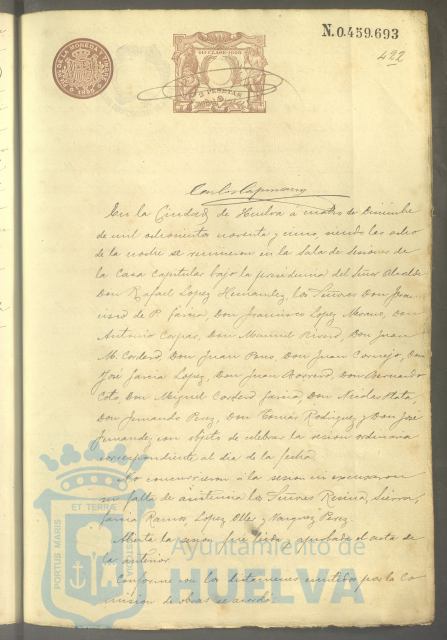 N.0.459.693
422
11ª CLASE-1895
2 PESETAS
Carlos Capmany
En la Ciudad de Huelva á cuatro de Diciembre
de mil ochocientos noventa y cinco, siendo las ocho
de la noche se reunieron en la Sala de Sesiones de
la Casa Capitular bajo la presidencia del Señor Alcalde
Don Rafael Lopez Hernandez, los Señores Don Fran
cisco de P. Garcia, Don Francisco Lopez Moreno, Don
Antonio Don Manuel Don Juan
M. Cordero Don Juan Don Juan Cornejo, Don
José Garcia Lopez, Don Juan Borrero, Don Bernardo
Coto, Don Miguel Cordero Garcia, Don Nicolas Mata,
Don Fernando Don Tomás Rodriguez y Don José
Fernandez, con objeto de celebrar la sesion ordinaria
correspondiente al dia de la fecha.
No concurrieron á la sesion ni excusaron
su falta de asistencia los Señores
Garcia Ramos, Lopez y Vazquez Perez
Abierta la sesion fué leida y aprobada el acta de
la anterior.
Conforme con los dictamenes emitidos por la Co
mision de obras se acordó:
PORTUS MARIS
ET TERRÆ
CUSTODIA
Ayuntamiento de
HUELVA